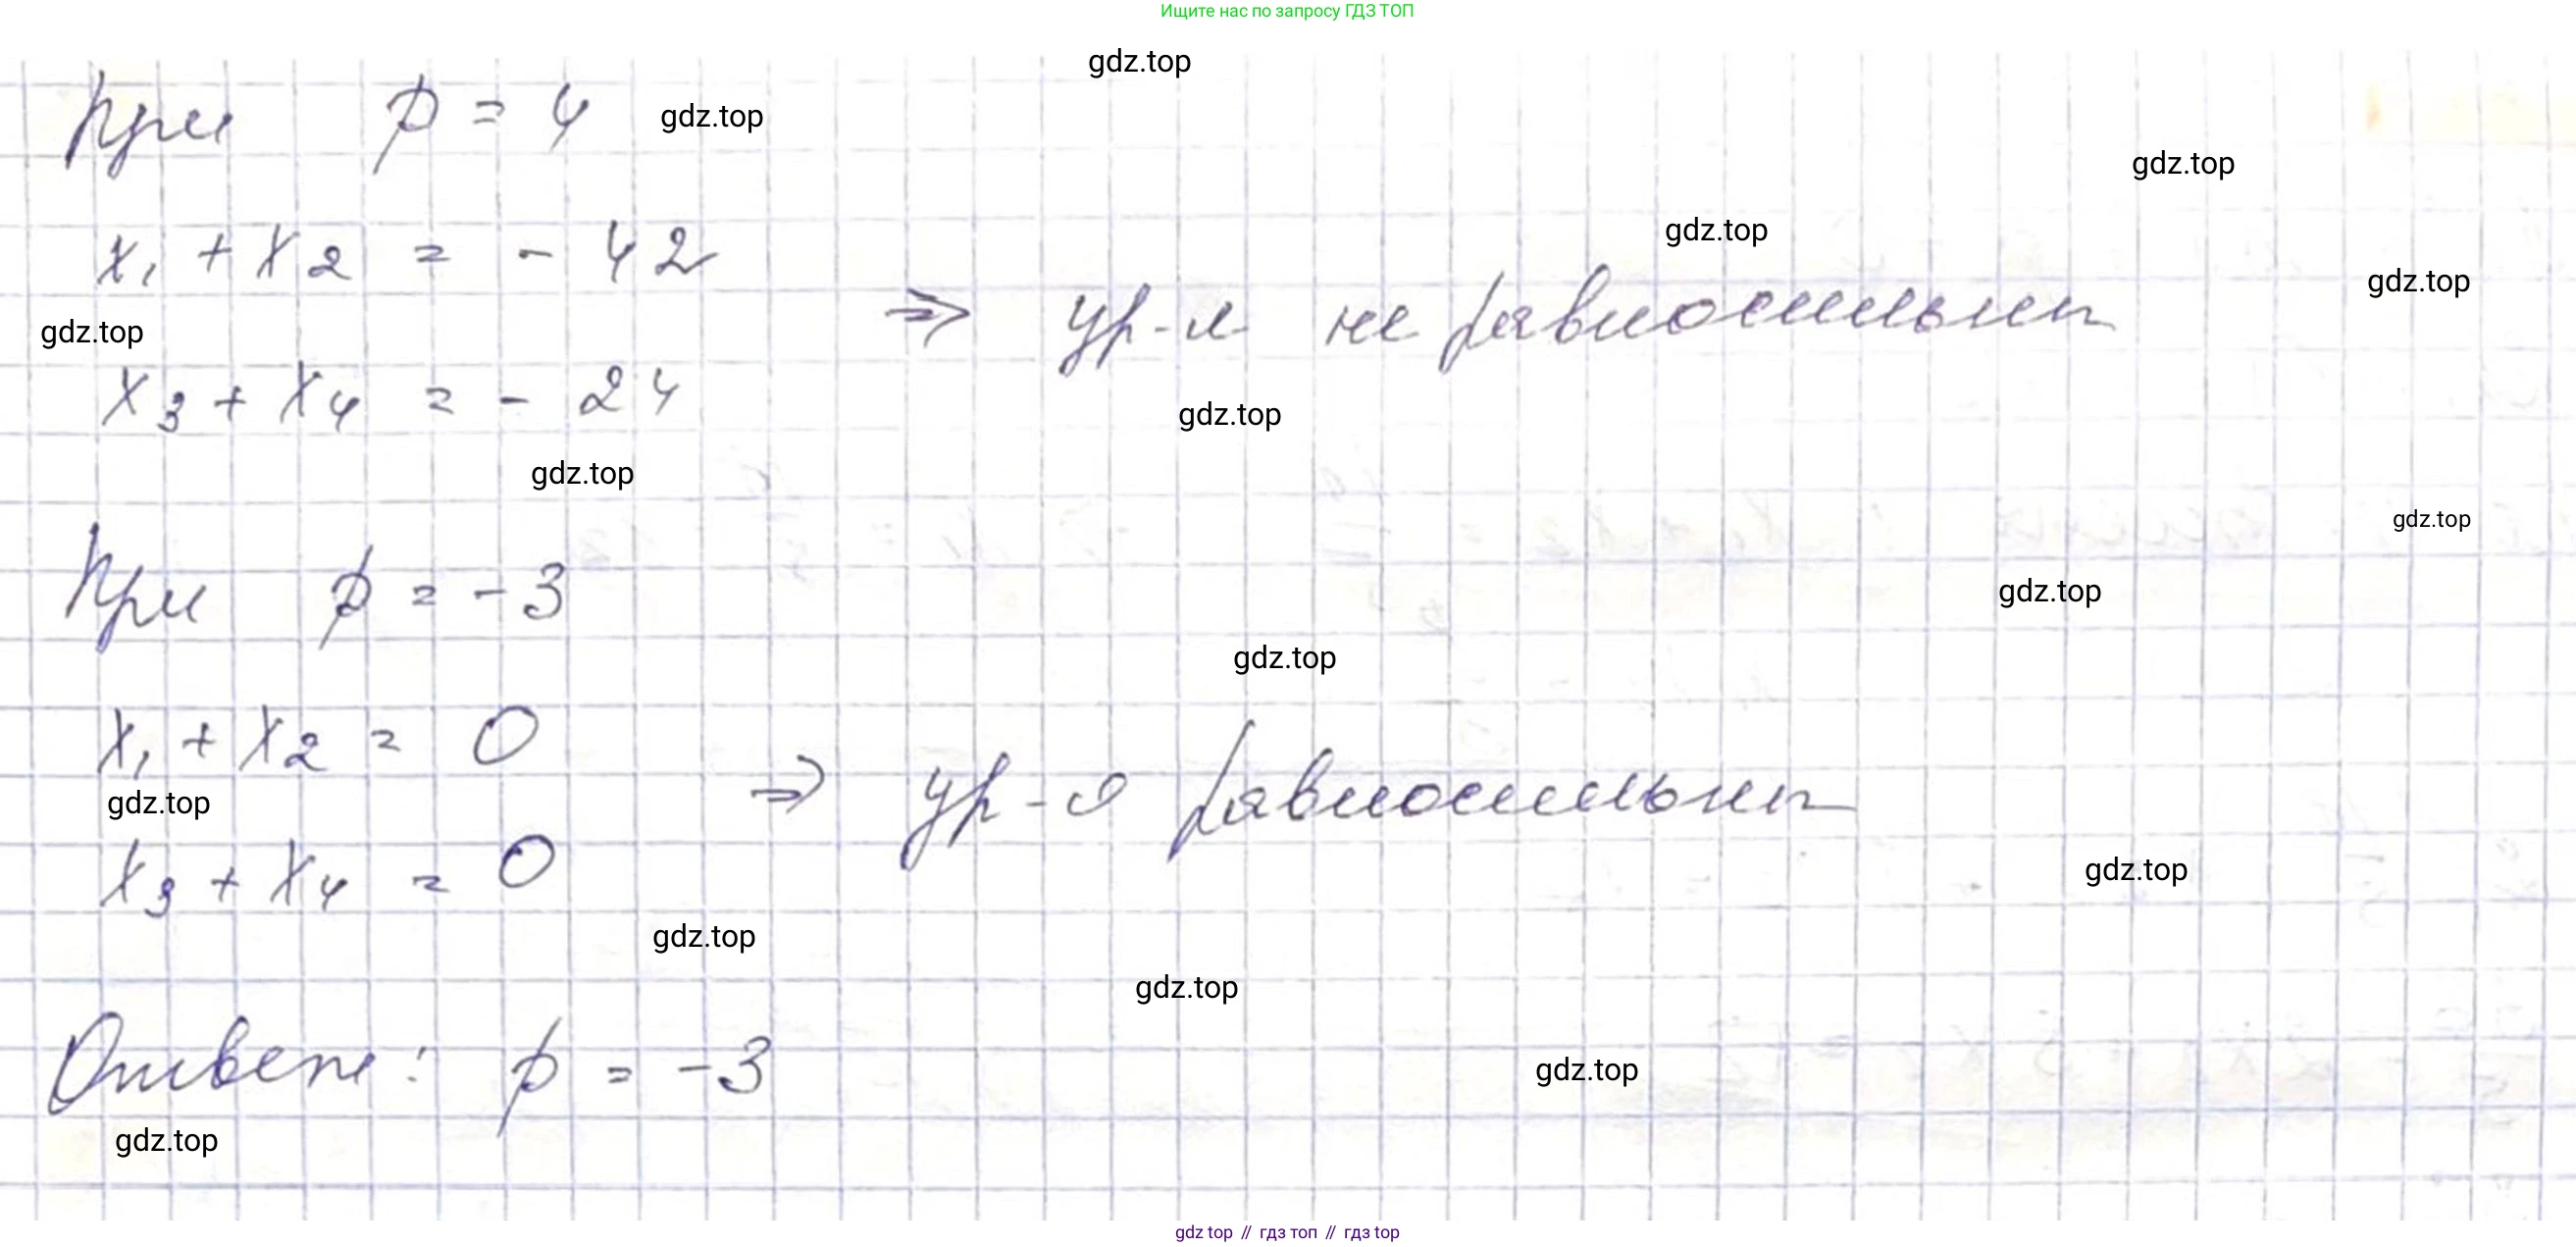 Ищите нас по запросу ГДЗ ТОП
gdz.top
При p = 4 gdz.top
gdz.top
gdz.top
x₁ + x₂ = - 42
gdz.top
⇒ ур-я не равносильны
gdz.top
x₃ + x₄ = - 24
gdz.top
gdz.top
gdz.top
При p = -3
gdz.top
gdz.top
x₁ + x₂ = 0
⇒ ур-я равносильны
gdz.top
x₃ + x₄ = 0
gdz.top
gdz.top
gdz.top
Ответ: p = -3
gdz.top
gdz.top
gdz top // гдз топ // гдз top